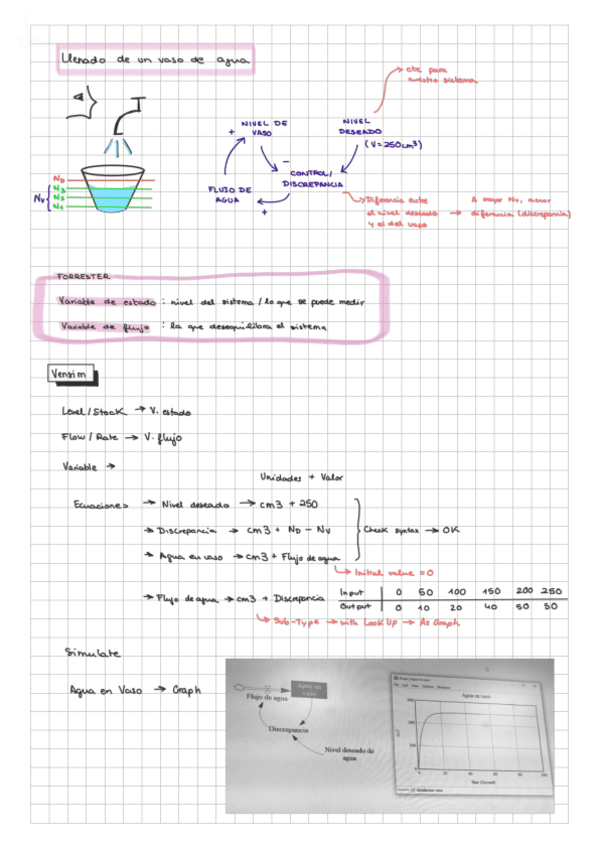 Llenado de un vaso de agua
cte para
nuestro sistema
NIVEL DE
VASO
+
NIVEL
DESEADO
(V=250cm³)
−
CONTROL/
DISCREPANCIA
FLUJO DE
AGUA
+
ND
N3
N2
N1
NV
Diferencia entre
el nivel deseado →
y el del vaso
A mayor Nv, menor
diferencia (discrepancia)
FORRESTER
Variable de estado : nivel del sistema / lo que se puede medir
Variable de flujo : la que desequilibra el sistema
Vensim
Level / Stock → V. estado
Flow / Rate → V. flujo
Variable →
Unidades + Valor
Ecuaciones → Nivel deseado → cm3 + 250
→ Discrepancia → cm3 + ND − NV
Check syntax → OK
→ Agua en vaso → cm3 + Flujo de agua
→ Initial value = 0
→ Flujo de agua → cm3 + Discrepancia
Input 0 50 100 150 200 250
Output 0 10 20 40 50 50
→ Sub-Type → with Look Up → As Graph
Simulate
Agua en Vaso → Graph
Agua en
vaso
Flujo de agua
Discrepancia
Nivel deseado de
agua
Agua en vaso